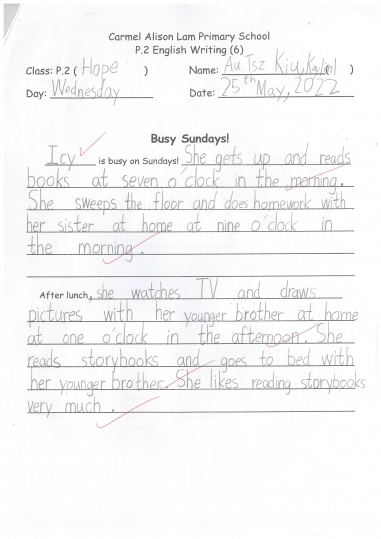 Carmel Alison Lam Primary School
P.2 English Writing (6)
Class: P.2 ( Hope ) Name: Au Tsz Kiu,
Day: Wednesday Date: 25th May, 2022
Busy Sundays!
Icy is busy on Sundays! She gets up and reads
books at seven o'clock in the morning.
She sweeps the floor and does homework with
her sister at home at nine o'clock in
the morning.
After lunch, she watches TV and draws
pictures with her younger brother at home
at one o'clock in the afternoon. She
reads storybooks and goes to bed with
her younger brother. She likes reading storybooks
very much .